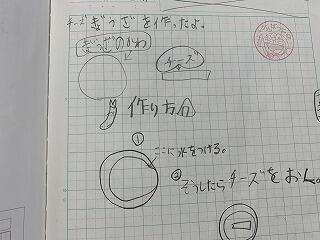 チーズぎょうざを作ったよ。
ぎょうざのかわ
チーズ
作り方
①
ここに水をつける。
②
そうしたらチーズをおく。